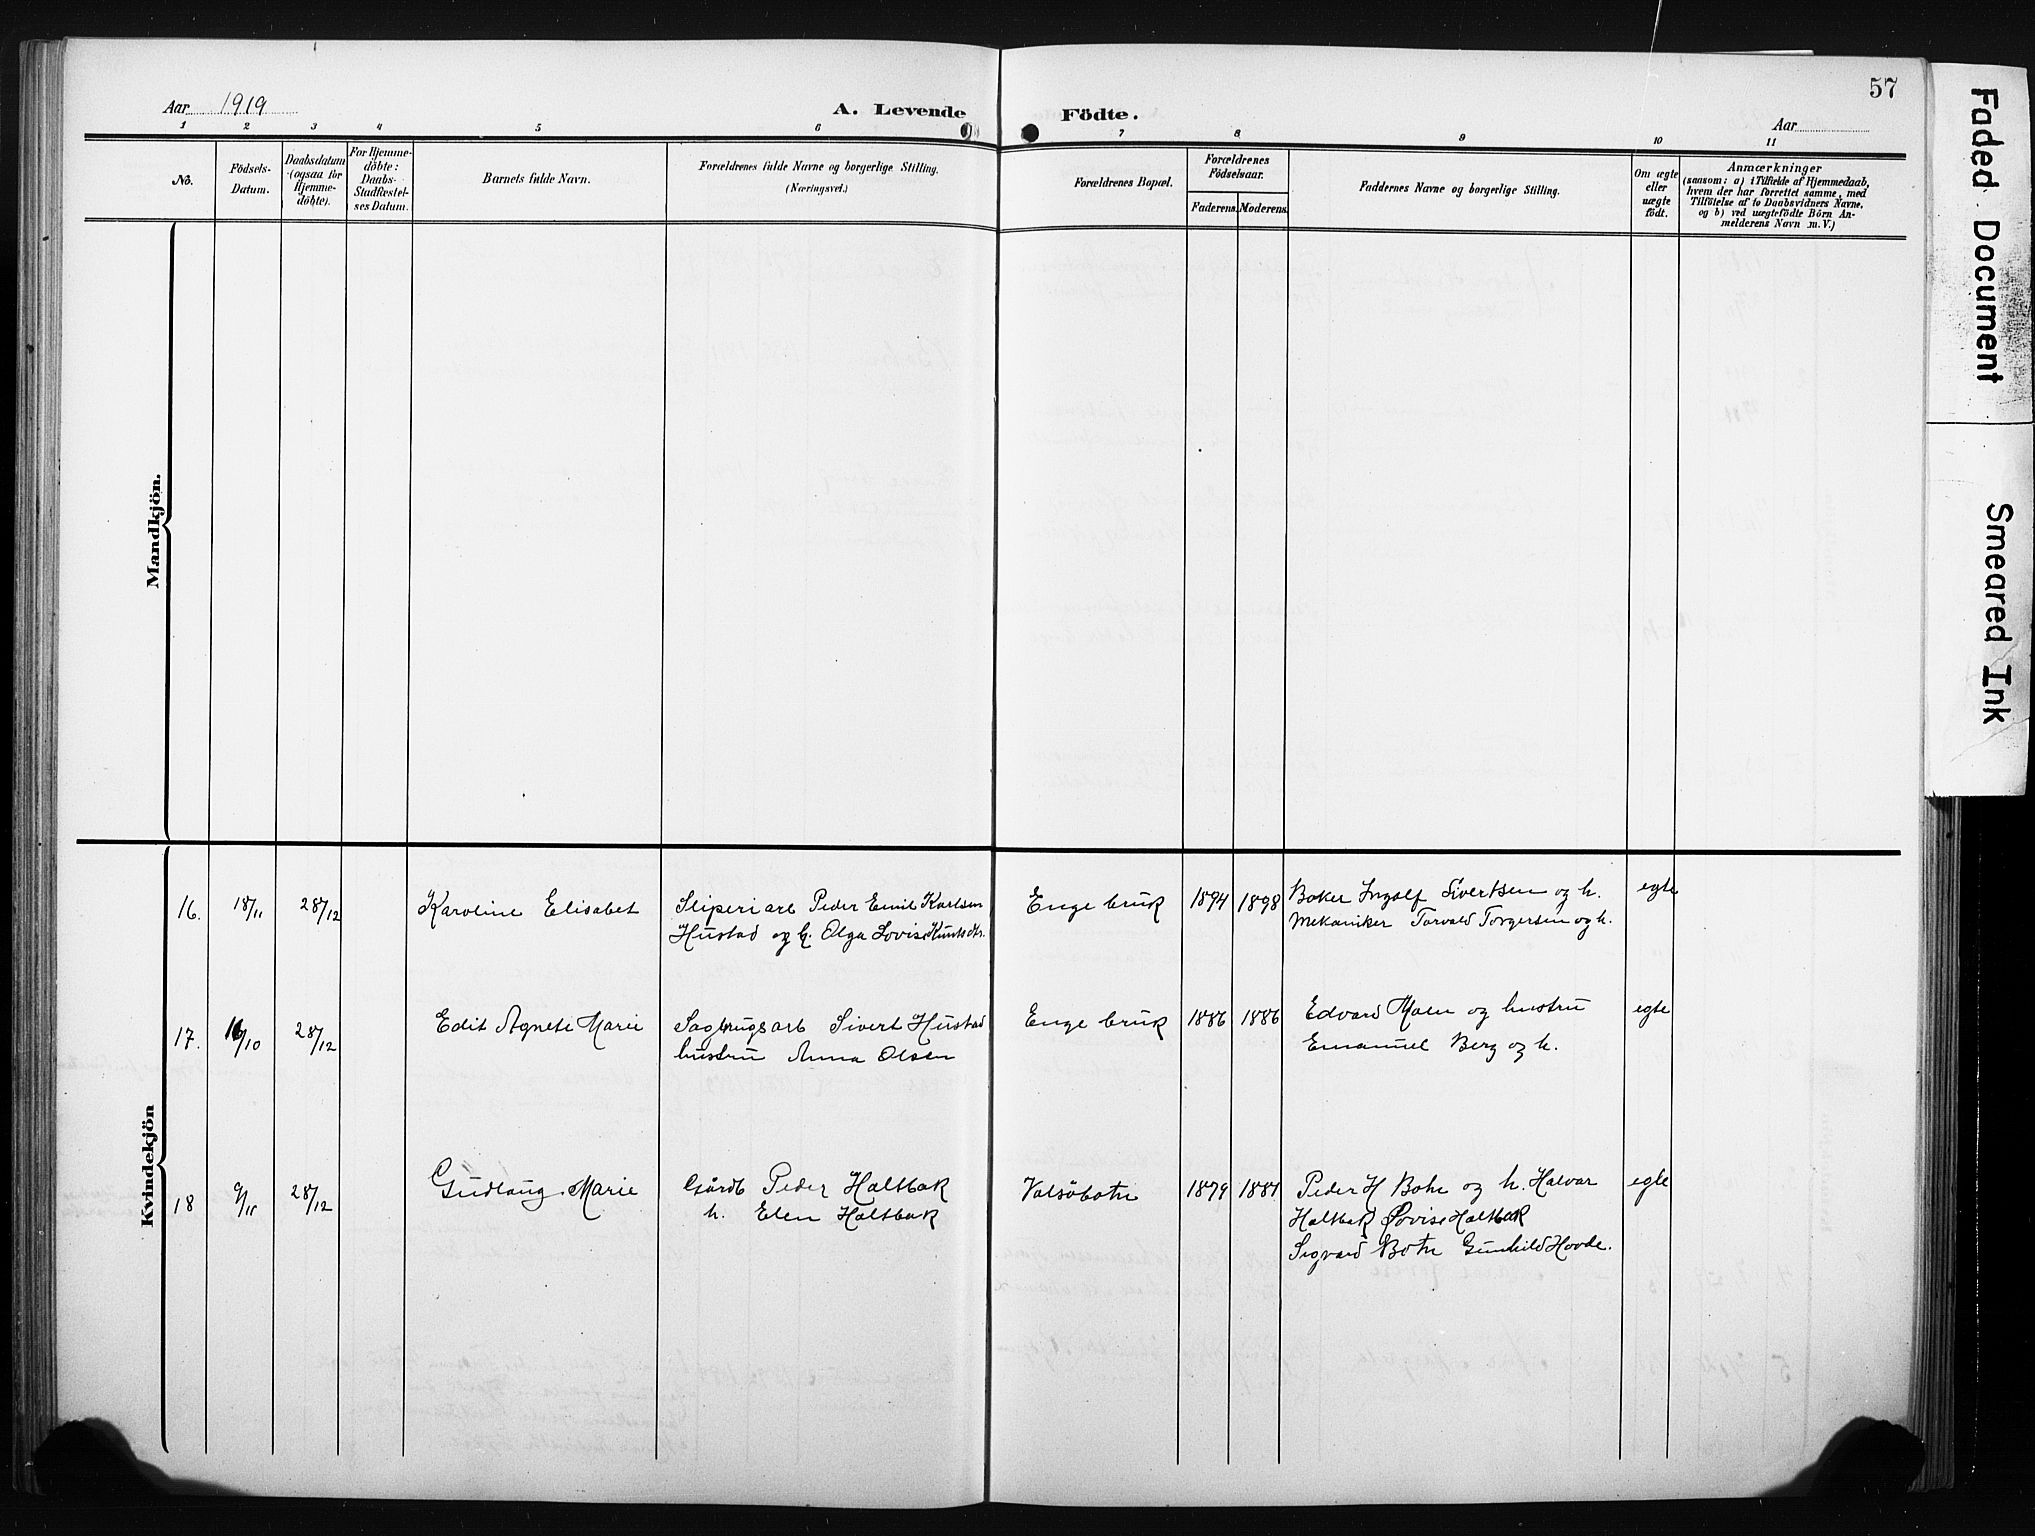 57
Aar 1919
A. Levende Födte.
Aar
1 2 3 4 5 6 7 8 9 10 11
No.
Födsels-Datum.
Daabsdatum (ogsaa for Hjemmedöbte).
For Hjemmedöbte: Daabs-Stadfæstelses Datum.
Barnets fulde Navn.
Forældrenes fulde Navne og borgerlige Stilling.
(Næringsvei.)
Forældrenes Bopæl.
Forældrenes Födselsaar.
Faderens. Moderens.
Faddernes Navne og borgerlige Stilling.
Om ægte eller uægte födt.
Anmærkninger
(saasom: a) i Tilfælde af Hjemmedaab,
hvem der har forrettet samme, med
Tilföielse af to Daabsvidners Navne,
og b) ved uægtefödte Börn An-
melderens Navn m. V.)
Mandkjön.
Kvindekjön
16. 18/11 28/12 Karoline Elisabet Sliperiarb Peder Emil Karlsen Enge bruk 1894 1898 Baker Ingolf Sivertsen og h. egte
Hustad og h. Olga Lovise Knutsdtr. Mekaniker Torvald Torgersen og h.
17. 16/10 28/12 Edit Agnete Marie Sagbrugsarb Sivert Hustad Enge bruk 1886 1886 Edvard Moen og hustru egte
hustru Anna Olsen Emanuel Berg og h.
18 9/11 28/12 Gudlaug Marie Gårdb Peder Haltbak Valsöbotn 1879 1881 Peder H Botn og h. Halvar egte
h. Elen Haltbak Haltbak Lovise Haltbak
Sigvard Botn Gunhild Hovde.
Faded Document
Smeared Ink